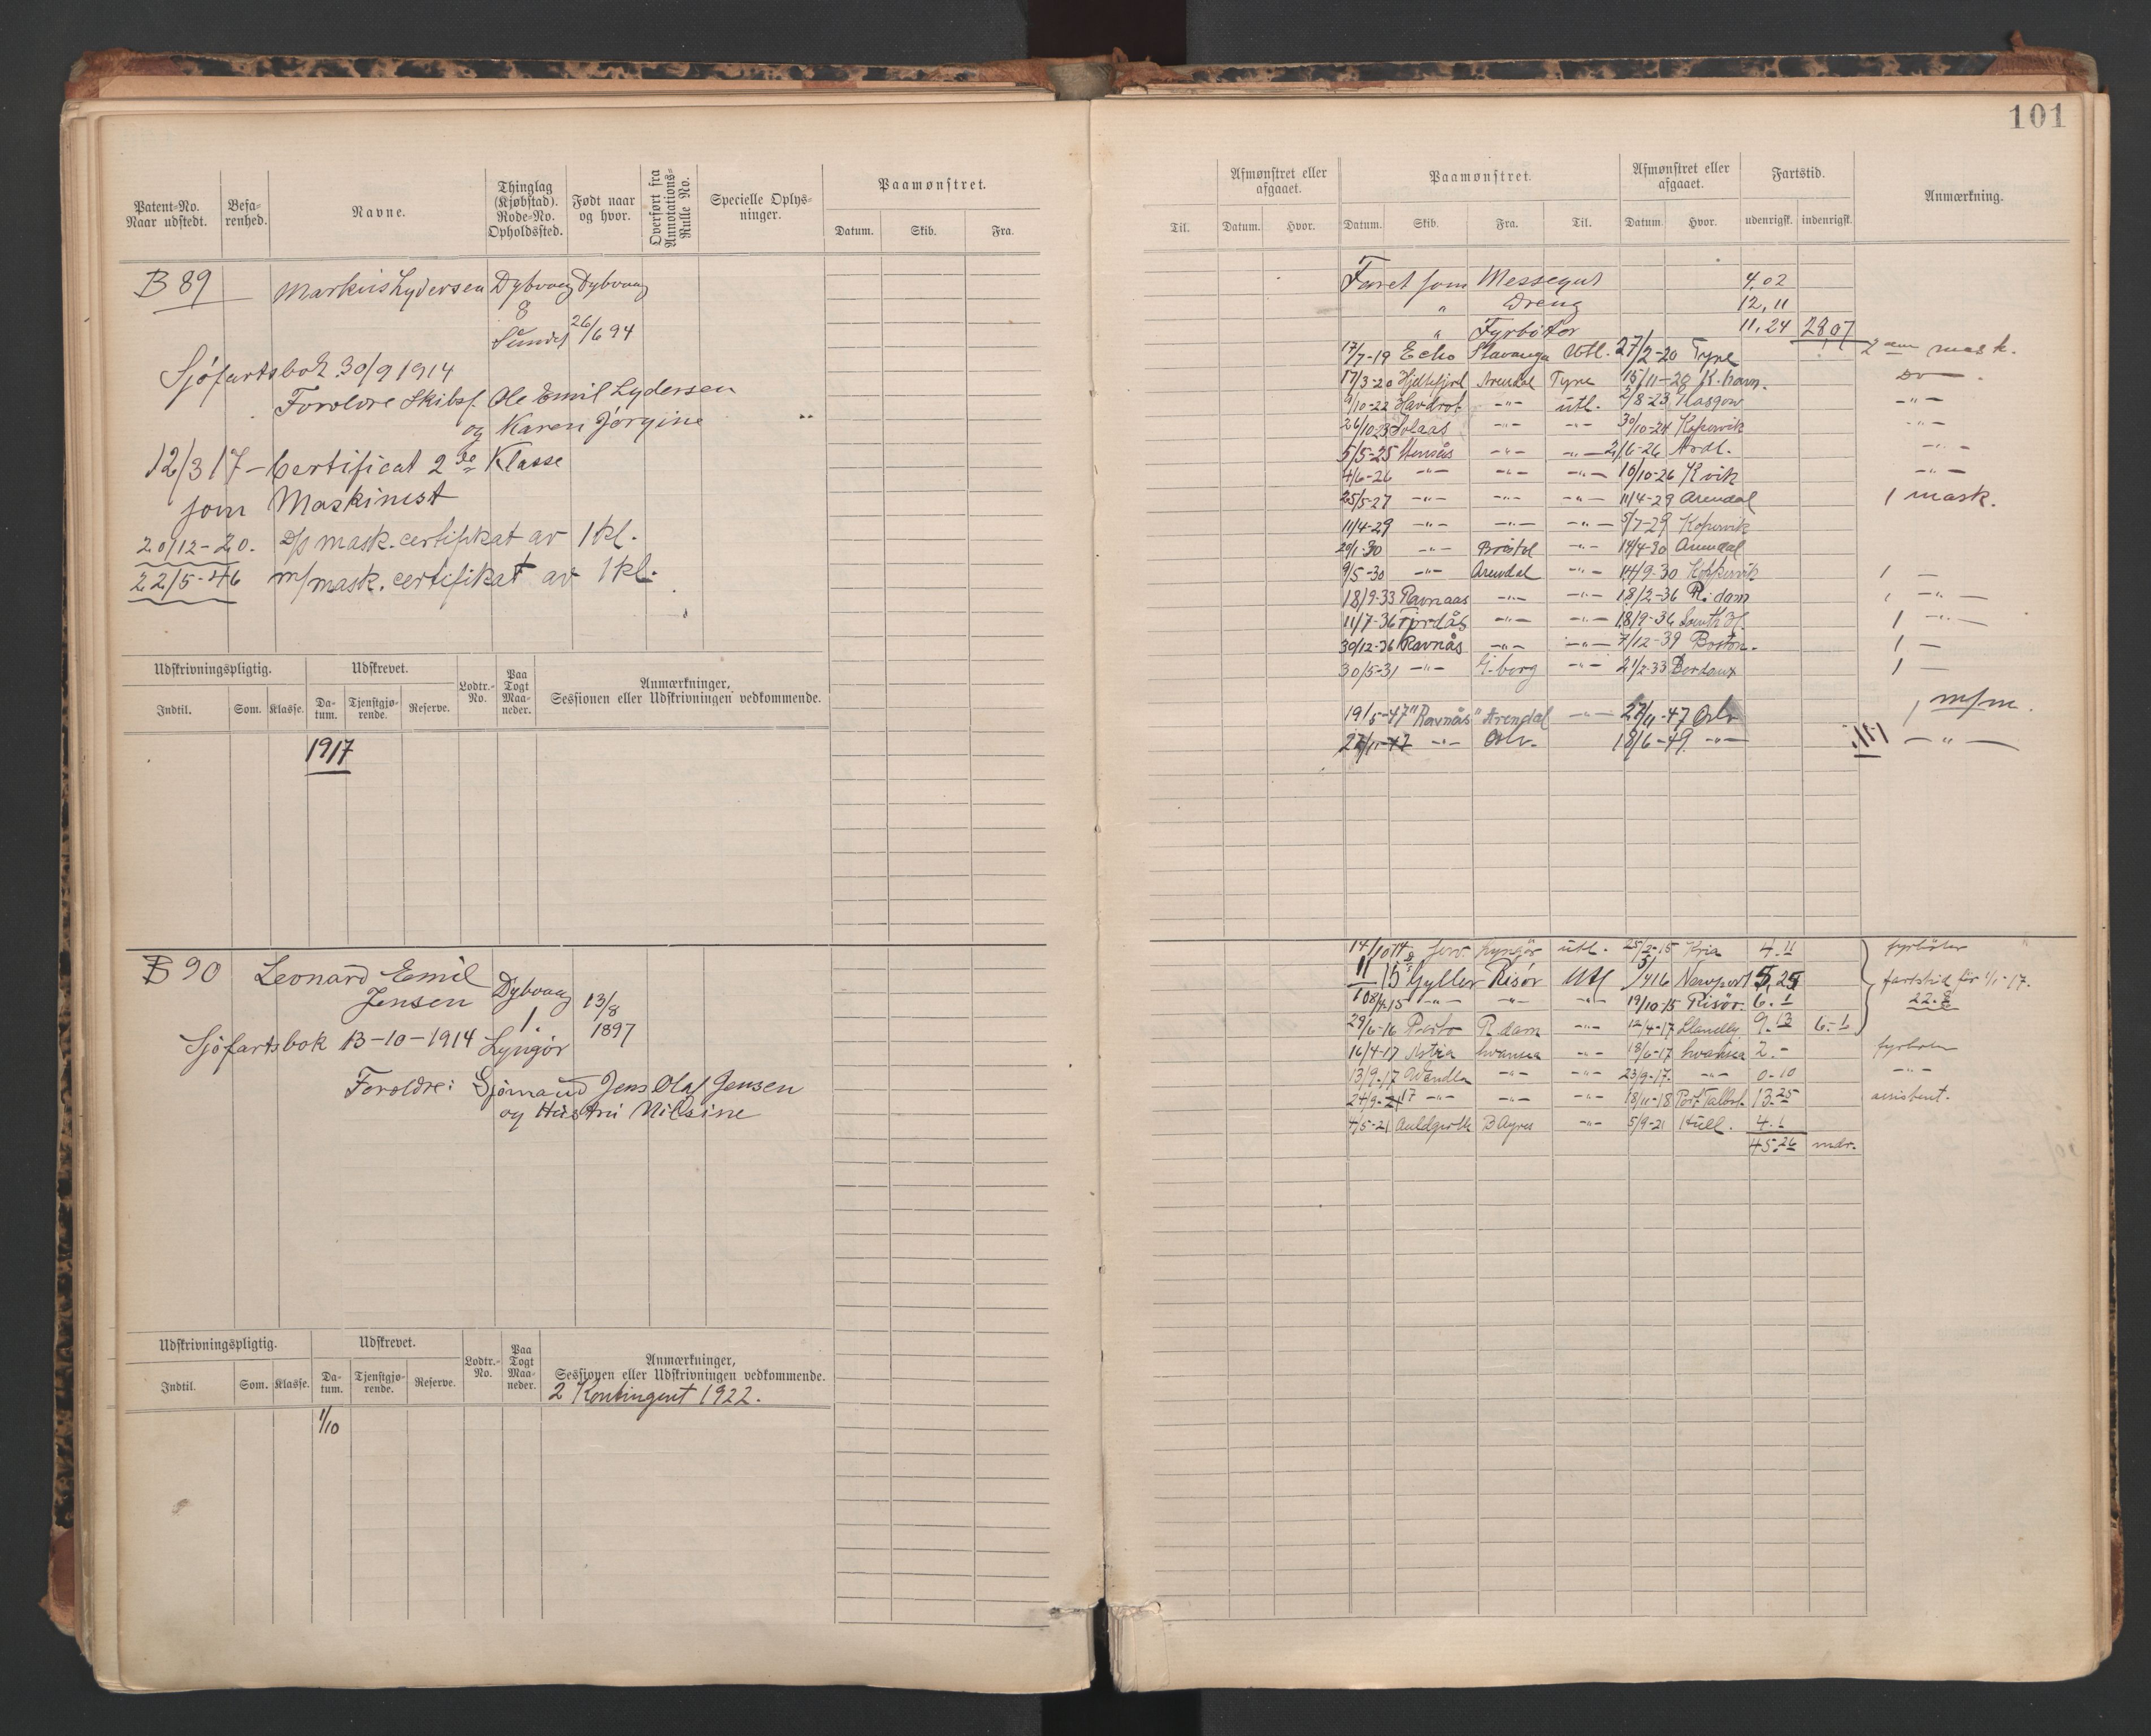 101
Patent-No. Naar udstedt.
Befarenhed.
Navne.
Thinglag (Kjøbstad). Rode-No. Opholdssted.
Født naar og hvor.
Overført fra Annotations-Rulle No.
Specielle Oplysninger.
Paamønstret.
Datum. Skib. Fra.
Afmønstret eller afgaaet.
Paamønstret.
Afmønstret eller afgaaet.
Fartstid.
Anmærkning.
Til. Datum. Hvor. Datum. Skib. Fra. Til. Datum. Hvor. udenrigsk. indenrigsk.
B 89 Markus Lydersen Dybvaag Dybvaag
8
Sundet 26/6 94
Sjøfartsbok 30/9 1914
Forældre Skibsf. Ole Emil Lydersen
og Karen Jørgine
12/3 17 - Certificat 2 Klasse
som Maskinist
20/12-20. D/s mask. certifikat av 1 kl.
22/5-46 m/mask. certifikat av 1 kl.
Faret som Messegut 4,02
" Dreng 12,11
" Fyrbøter 11,24 28,07
17/7-19 Echo Stavanger Utl. 27/2-20 Tyne 2den mask.
17/3-20 Hjeltefjord Arendal Tyne 15/11-20 K.havn. Do
9/10-22 Havdrot -"- utl. 2/8-23 Glasgow -"-
26/10-23 -"- -"- 30/10-24 Kopervik -"-
5/5-25 -"- -"- 2/6-26 Ardl. -"-
4/6-26 -"- -"- -"- 10/10-26 K.vik -"-
25/5-27 -"- -"- -"- 11/4-29 Arendal 1 mask.
11/4-29 -"- -"- -"- 5/7-29 Kopervik
20/1-30 -"- Bristol -"- 14/4-30 Arendal
9/5-30 -"- Arendal -"- 14/9-30 Kopervik 1 -
18/9-33 Ravnaas -"- -"- 18/2-36 R.dam 1 -"-
11/7-36 Tordås -"- -"- 18/9-36 1 -"-
30/12-36 Ravnås -"- -"- 7/12-39 Boston. 1 -
30/5-31 -"- G.borg -"- 21/2-33 Bordaux 1 -
19/5-47 "Ravnås" Arendal -"- 27/11-47 Oslo 1 m/m.
27/11-47 -"- Oslo. 18/6-49 -"- -"-
Udskrivningspligtig. Udskrevet. Lodtr.-No. Paa Togt Maaneder. Anmærkninger, Sessionen eller Udskrivningen vedkommende.
Indtil. Som. Klasse. Datum. Tjenstgjørende. Reserve.
1917
B 90 Leonard Emil
Jensen Dybvaag 13/8
1. 1897
Sjøfartsbok 13-10-1914 Lyngør
Forældre: Sjømand Jens Olaf Jensen
og Hustru Nilsine
14/10 14 Lyngør utl. 25/2-15 Kria 4.11 fyrbøter
11/ 15 Gyller Risør Utl 5/4 16 Newport 5,25 fartstid før 1/1-17.
-"- -"- -"- 19/10-15 Risør. 6.1 22.8
29/6-16 Presto R.dam -"- 12/4-17 9.13 6.-1
16/4-17 Swansea -"- 18/6-17 Swansea 2.- fyrbøter
13/9-17 Wandla -"- -"- 23/9-17. -"- 0-10 -"-
24/9-17 -"- -"- -"- 18/11-18 Port Talbot. 13.25 assistent.
4/5-21 Auldgirth B Ayres -"- 5/9-21 Hull. 4.1
45.26 mdr.
Udskrivningspligtig. Udskrevet. Lodtr.-No. Paa Togt Maaneder. Anmærkninger, Sessionen eller Udskrivningen vedkommende.
Indtil. Som. Klasse. Datum. Tjenstgjørende. Reserve.
2 Kontingent 1922.
1/10